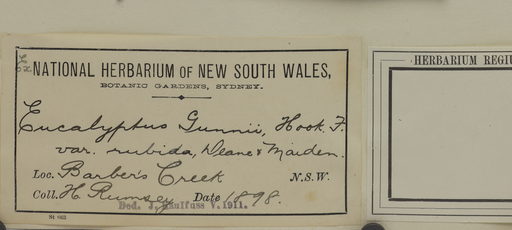 NATIONAL HERBARIUM OF NEW SOUTH WALES,
BOTANIC GARDENS, SYDNEY.
Eucalyptus Gunnii, Hook. F.
var. rubida, Deane & Maiden.
Loc. Barber's Creek N.S.W.
Coll. H. Rumsey Date 1898.
Ded. J. Kaulfuss V. 1911.
HERBARIUM REGIU